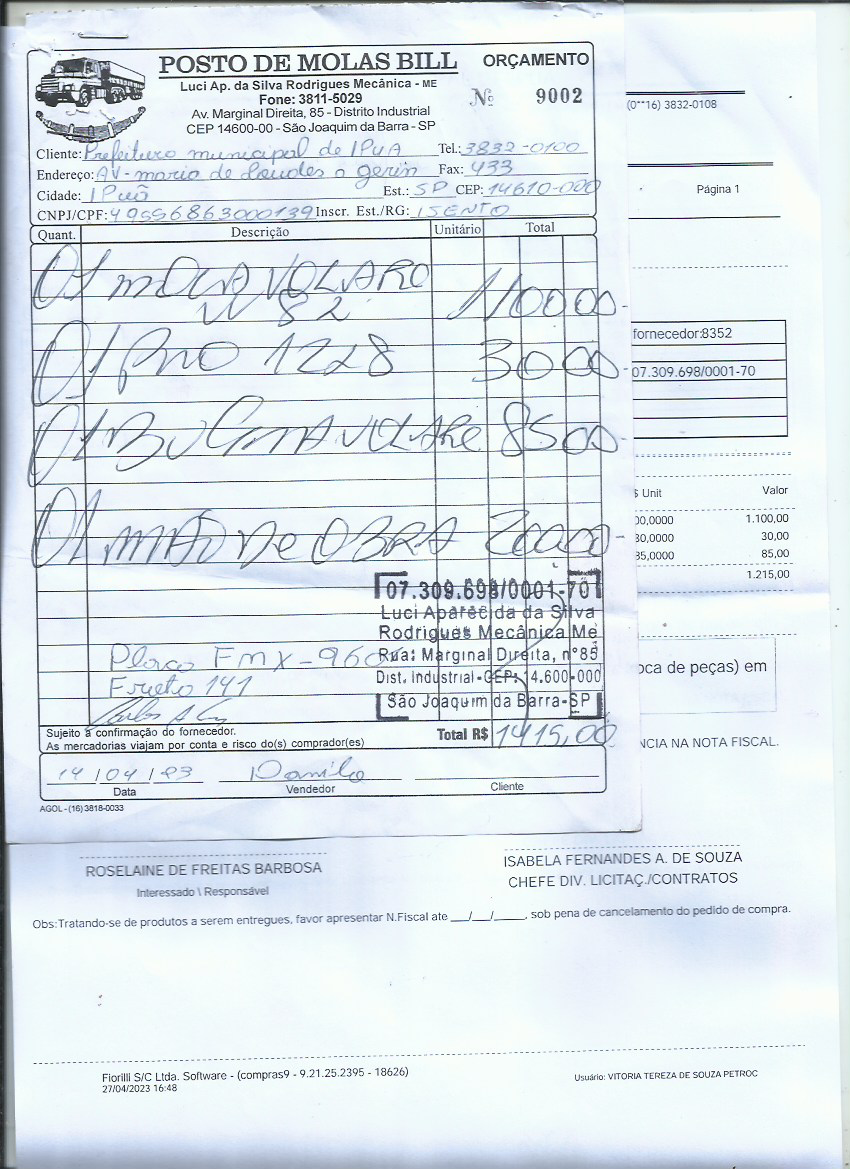 POSTO DE MOLAS BILL
ORÇAMENTO
Luci Ap. da Silva Rodrigues Mecânica - ME
Fone: 3811-5029
Nº 9002
Av. Marginal Direita, 85 - Distrito Industrial
CEP 14600-00 - São Joaquim da Barra - SP
Cliente: Prefeitura municipal de IPUA Tel.: 3832-0100
Endereço: AV- maria de Lourdes a gerin Fax: 433
Cidade: IPuã Est.: SP CEP: 14610-000
CNPJ/CPF: 49556863000139 Inscr. Est./RG: ISENTO
Quant. Descrição Unitário Total
01 MOLA VOLARE 110000-
W 82
01 PINO 12x8 3000-
01 BUCHA VOLARE 8500-
01 MÃO De OBRA 20000-
07.309.698/0001-70
Luci Aparecida da Silva
Rodrigues Mecânica Me
Rua: Marginal Direita, nº 85
Dist. Industrial - CEP: 14.600-000
São Joaquim da Barra-SP
Placa FMX-960
Freto 141
Sujeito à confirmação do fornecedor.
As mercadorias viajam por conta e risco do(s) comprador(es)
Total R$ 1415,00
14/04/23 Danilo
Data Vendedor Cliente
AGOL - (16) 3818-0033
(0**16) 3832-0108
Página 1
fornecedor:8352
07.309.698/0001-70
$ Unit Valor
00,0000 1.100,00
30,0000 30,00
35,0000 85,00
1.215,00
oca de peças) em
NCIA NA NOTA FISCAL.
ROSELAINE DE FREITAS BARBOSA
Interessado \ Responsável
ISABELA FERNANDES A. DE SOUZA
CHEFE DIV. LICITAÇ./CONTRATOS
Obs:Tratando-se de produtos a serem entregues, favor apresentar N.Fiscal ate ___/___/_____, sob pena de cancelamento do pedido de compra.
Fiorilli S/C Ltda. Software - (compras9 - 9.21.25.2395 - 18626)
27/04/2023 16:48
Usuário: VITORIA TEREZA DE SOUZA PETROC